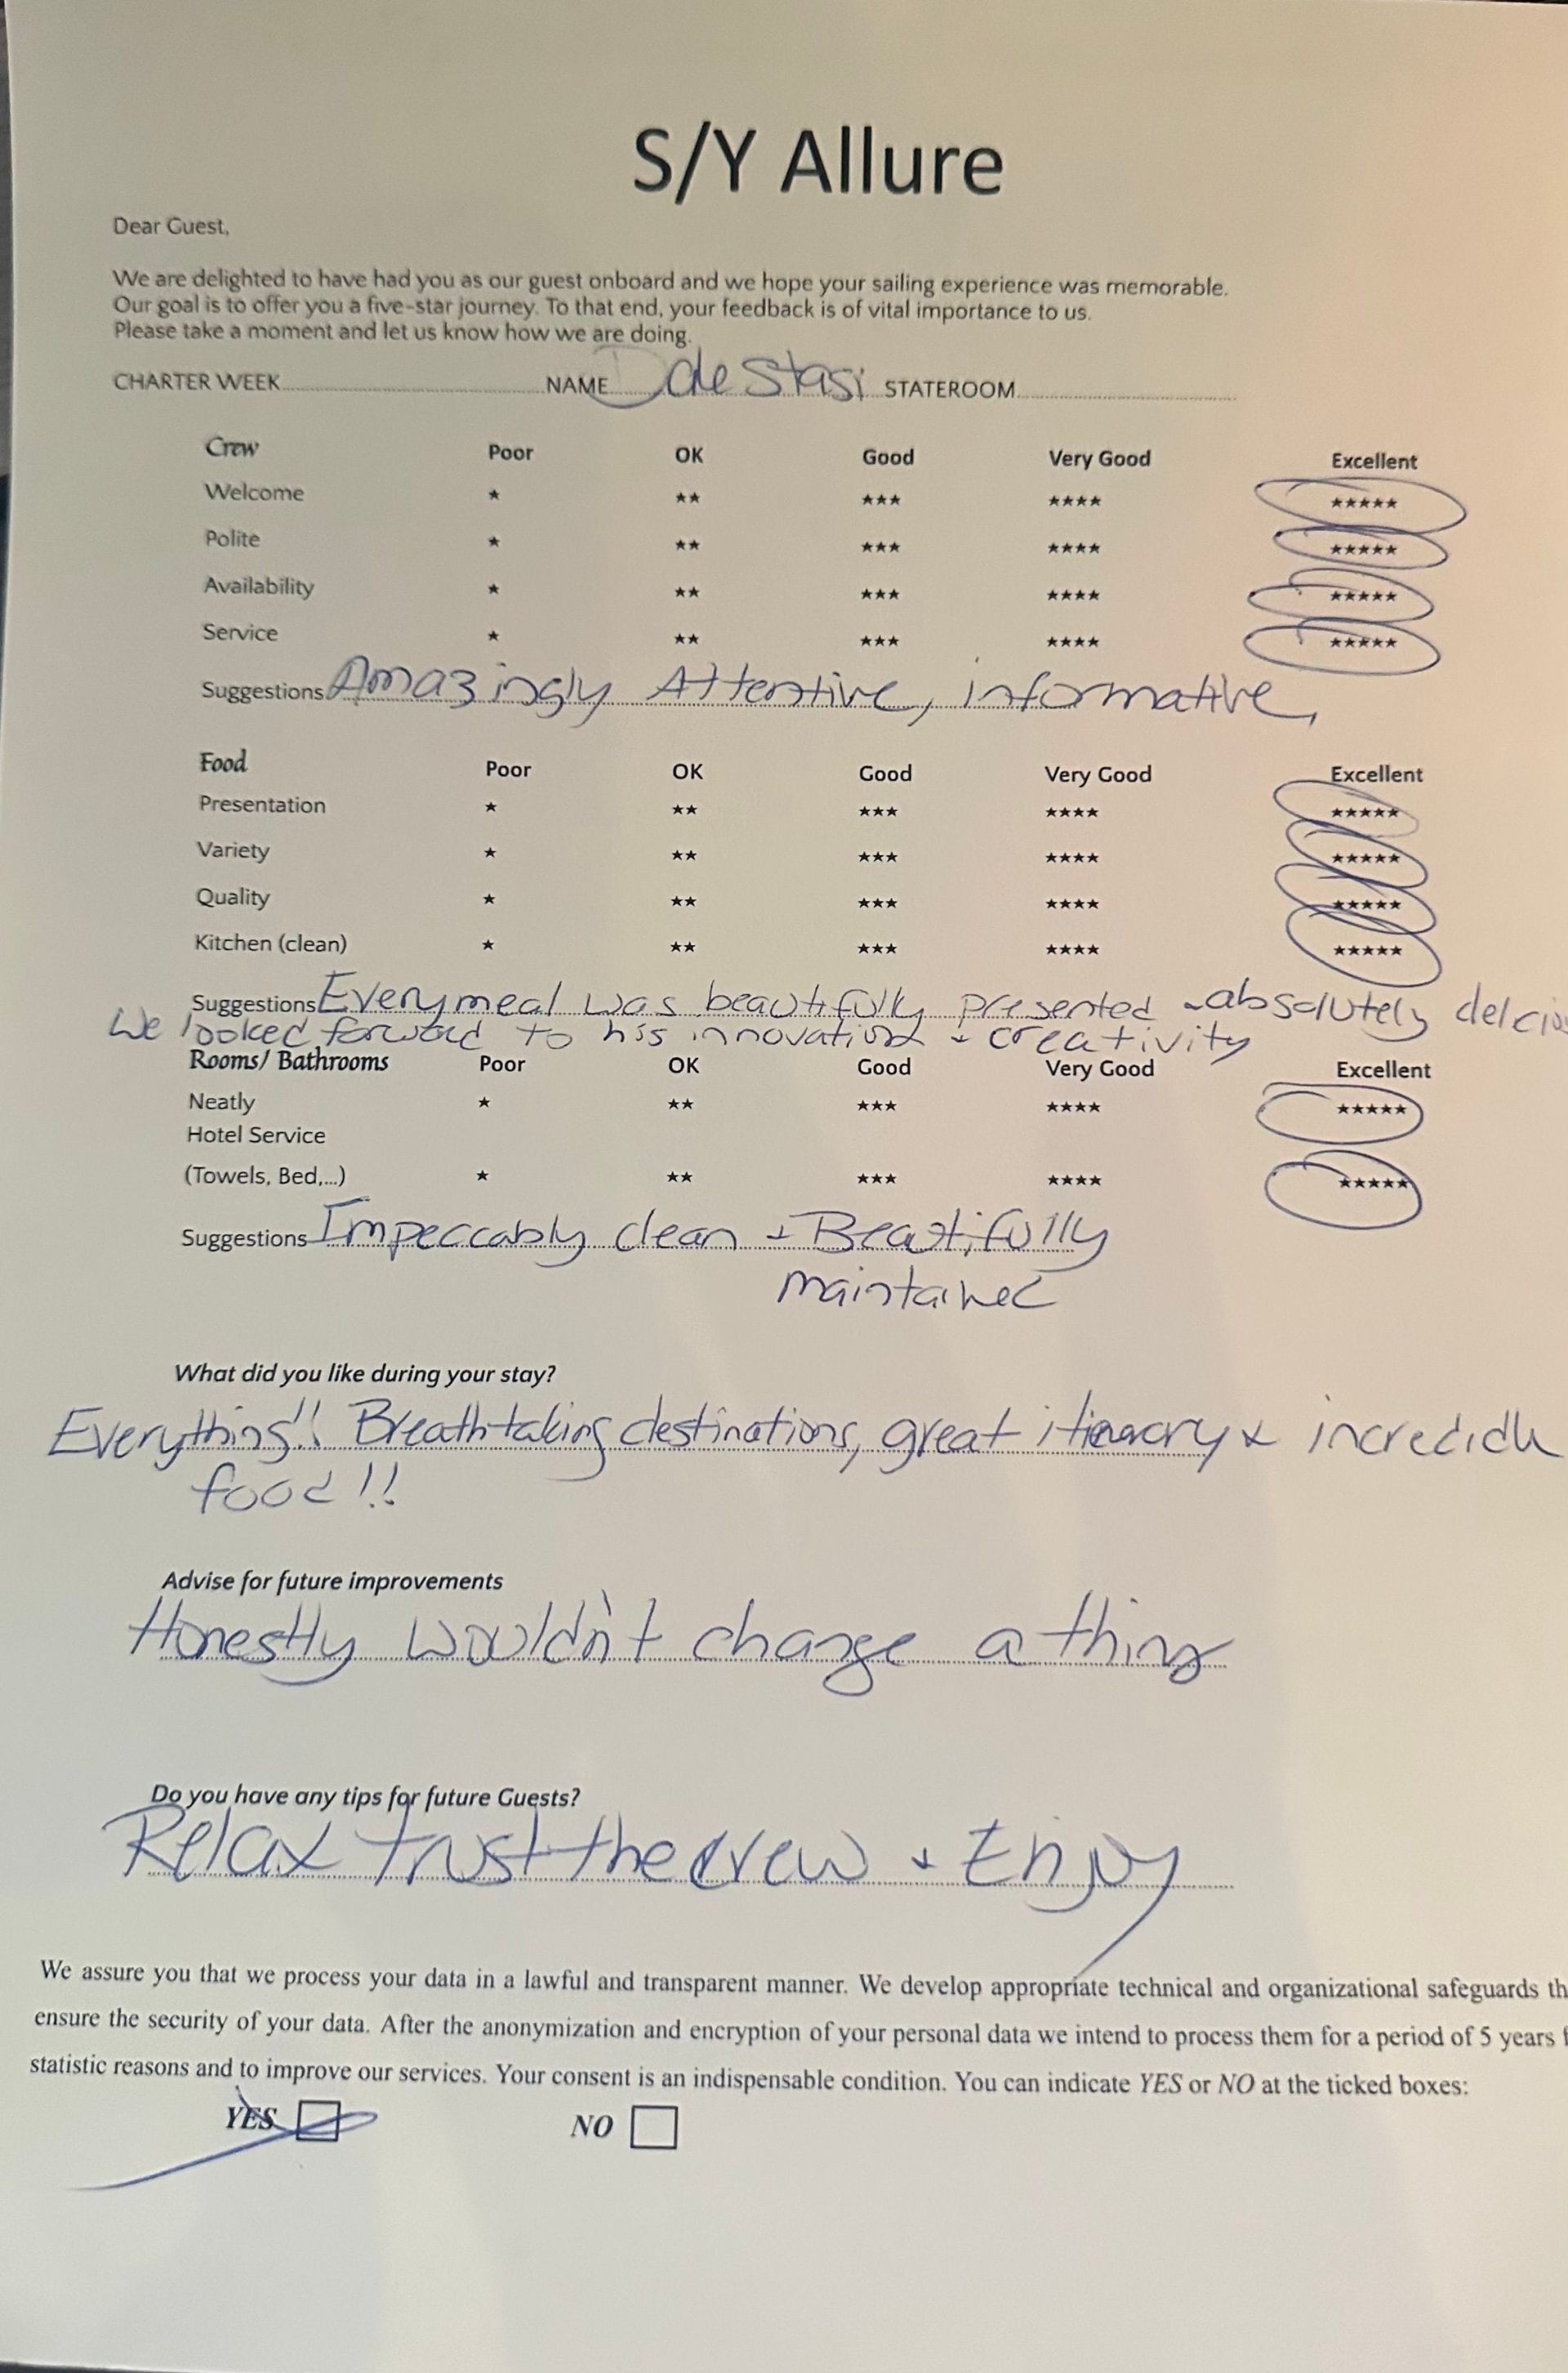 S/Y Allure
Dear Guest,
We are delighted to have had you as our guest onboard and we hope your sailing experience was memorable.
Our goal is to offer you a five-star journey. To that end, your feedback is of vital importance to us.
Please take a moment and let us know how we are doing.
CHARTER WEEK NAME D de Stasi STATEROOM
Crew Poor OK Good Very Good Excellent
Welcome ★ ★★ ★★★ ★★★★ ★★★★★
Polite ★ ★★ ★★★ ★★★★ ★★★★★
Availability ★ ★★ ★★★ ★★★★ ★★★★★
Service ★ ★★ ★★★ ★★★★ ★★★★★
Suggestions Amazingly Attentive, informative,
Food Poor OK Good Very Good Excellent
Presentation ★ ★★ ★★★ ★★★★ ★★★★★
Variety ★ ★★ ★★★ ★★★★ ★★★★★
Quality ★ ★★ ★★★ ★★★★ ★★★★★
Kitchen (clean) ★ ★★ ★★★ ★★★★ ★★★★★
Suggestions Every meal was beautifully presented - absolutely
We looked forward to his innovation + creativity
Rooms/ Bathrooms Poor OK Good Very Good Excellent
Neatly ★ ★★ ★★★ ★★★★ ★★★★★
Hotel Service
(Towels, Bed,...) ★ ★★ ★★★ ★★★★ ★★★★★
Suggestions Impeccably clean + Beautifully
maintained
What did you like during your stay?
Everything!! Breathtaking destinations, great itinerary &
food!!
Advise for future improvements
Honestly wouldn't change a thing
Do you have any tips for future Guests?
Relax trust the crew + Enjoy
We assure you that we process your data in a lawful and transparent manner. We develop appropriate technical and organizational safeguards th
ensure the security of your data. After the anonymization and encryption of your personal data we intend to process them for a period of 5 years
statistic reasons and to improve our services. Your consent is an indispensable condition. You can indicate YES or NO at the ticked boxes:
YES NO